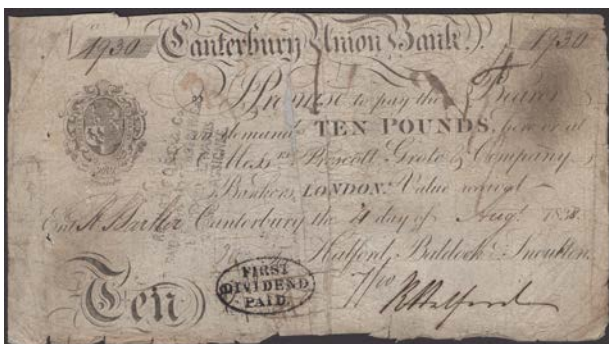 1930 Canterbury Union Bank. 1930
I Promise to pay the Bearer
on demand TEN POUNDS, here or at
Mess.rs Prescott Grote & Company
Bankers, LONDON. Value receiv'd
Ent. Canterbury the 4 day of Aug.t 1838
Halford, Baldock & Snoulten.
Ten
FIRST
DIVIDEND
PAID